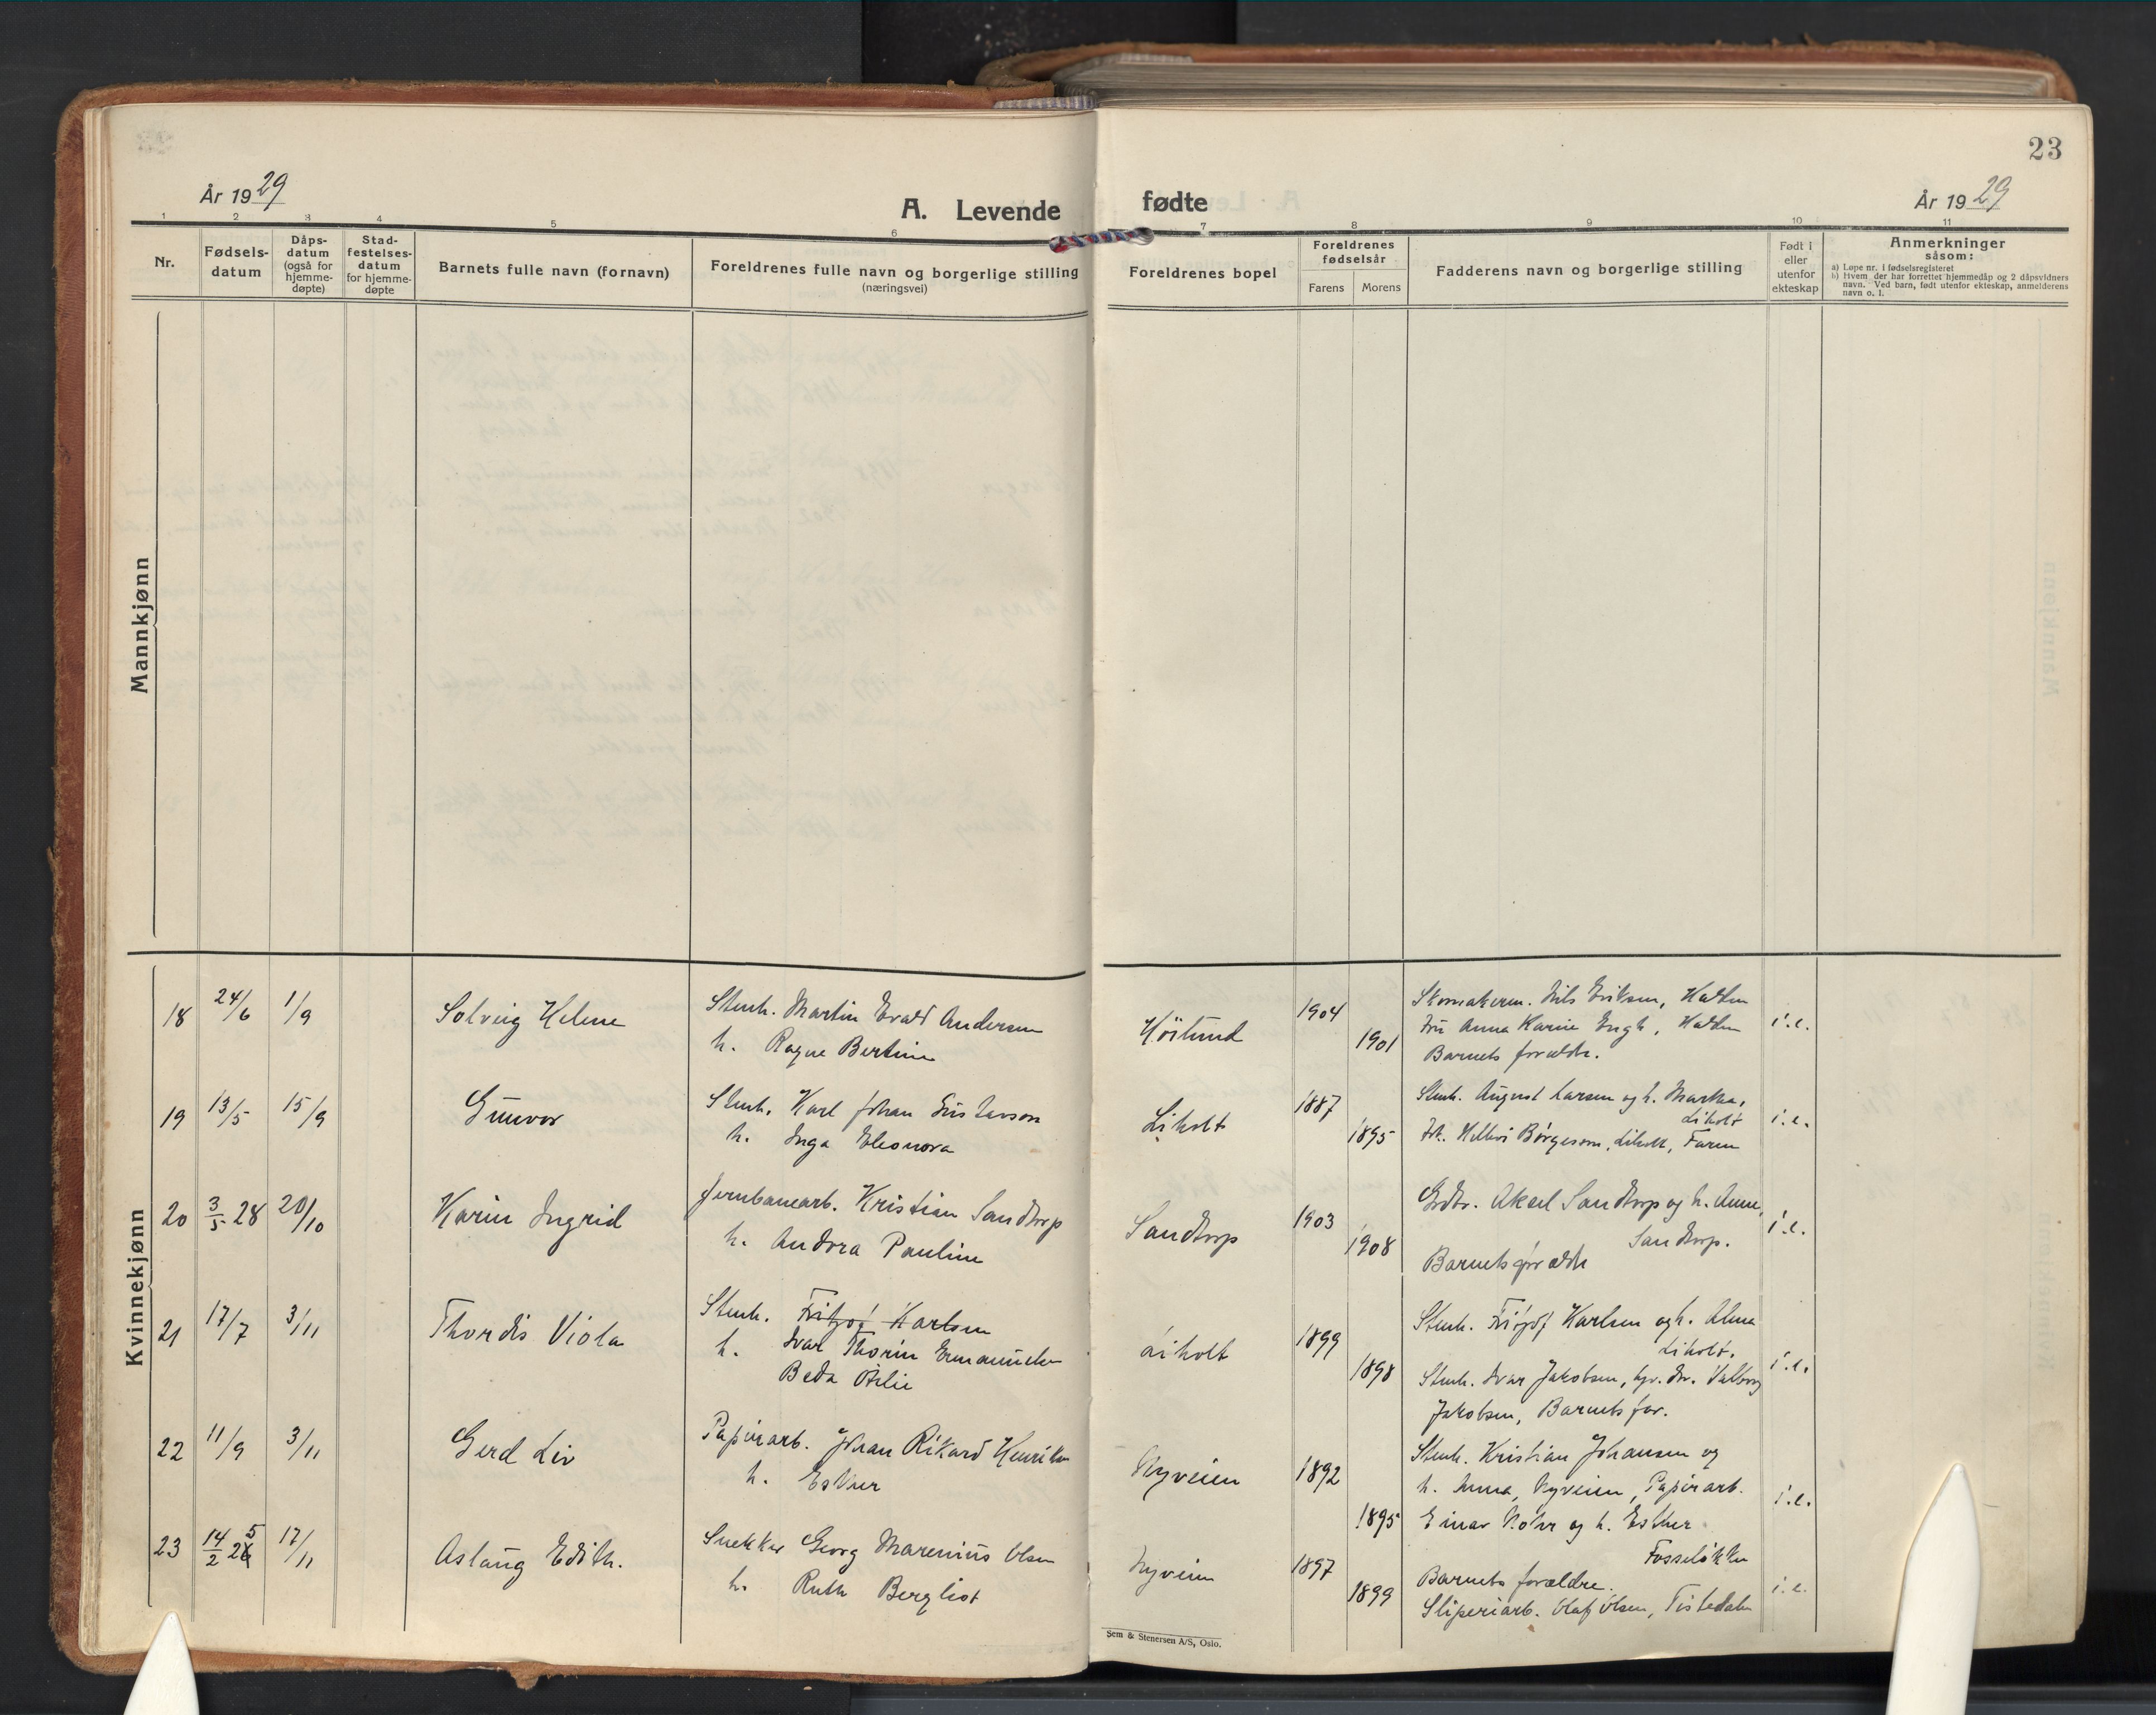 23
År 1929
A. Levende fødte
År 1929
1 2 3 4 5 6 7 8 9 10 11
Nr.
Fødsels-
datum
Dåps-
datum
(også for
hjemme-
døpte)
Stad-
festelses-
datum
for hjemme-
døpte
Barnets fulle navn (fornavn)
Foreldrenes fulle navn og borgerlige stilling
(næringsvei)
Foreldrenes bopel
Foreldrenes
fødselsår
Farens Morens
Fadderens navn og borgerlige stilling
Født i
eller
utenfor
ekteskap
Anmerkninger
såsom:
a) Løpe nr. i fødselsregisteret
b) Hvem der har forrettet hjemmedåp og 2 dåpsvidners
navn. Ved barn, født utenfor ekteskap, anmelderens
navn o. l.
Mannkjønn
Kvinnekjønn
18 24/6 1/9 Solveig Helene
Stenh. Martin Evald Andersen
h. Ragne Bertine
Høilund 1904 1901
Skomakerm. Nils Eriksen, Halden
Fru Anna Karine Engh, Halden
Barnets forældr.
i.e.
19 13/5 15/9 Gunvor
Stenh. Karl Johan Gustavson
h. Inga Eleonora
Liholt 1887 1895
Stenh. August Larsen og h. Martha,
Liholt
Frk. Børgesom, Liholt, Faren
i.e.
20 3/5 28 20/10 Karin Ingrid
Jernbanearb. Kristian Sandtorp
h. Andora Pauline
Sandtorp 1903 1908
Grdbr. Aksel Sandtorp og h. Anne,
Sandtorp.
Barnets forældr
i.e.
21 17/7 3/11 Thordis Viola
Stenh. Fritjof Karlsen
h. Ivar Thorin
Beda Otilie
Liholt 1899 1898
Stenh. Fritjof Karlsen og h. Alma
Liholt.
Stenh. Ivar Jakobsen, Valborg
Jakobsen, Barnets for.
i.e.
22 11/9 3/11 Gerd Liv
Papirarb. Johan Rikard Henriksen
h. Esther
Nyveien 1892 1895
Stenh. Kristian Johansen og
h. Anna, Nyveien, Papirarb.
Einar og h. Esther
Fosseløkka
i.e.
23 14/2 25 17/11 Aslaug Edith.
Snekker Georg Marenius Olsen
h. Ruth Bergliot
Nyveien 1897 1899
Barnets forældre.
Sliperiarb. Olaf Olsen, Tistedalen
i.e.
Sem & Stenersen A/S, Oslo.